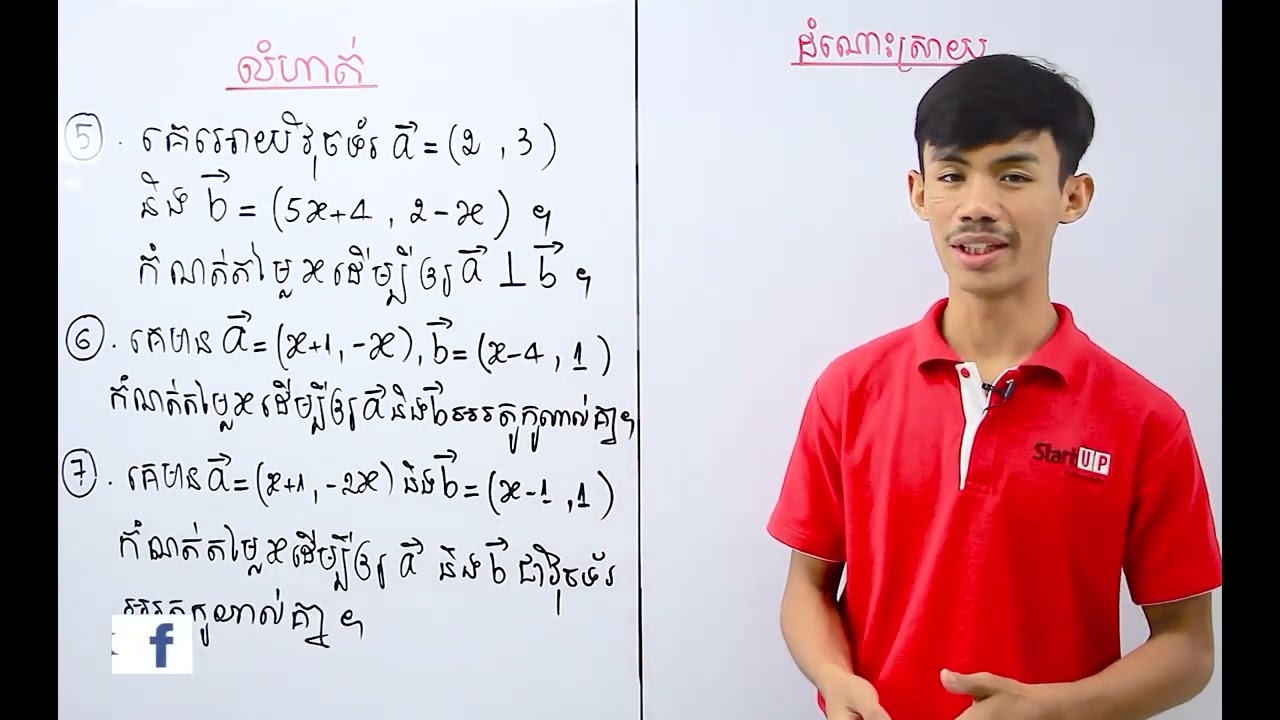 លំហាត់
5. គេអោយវ៉ិចទ័រ a⃗ = (2 , 3)
និង b⃗ = (5x+4 , 2-x) ។
កំណត់តម្លៃ x ដើម្បីឲ្យ a⃗ ⊥ b⃗ ។
6. គេមាន a⃗ = (x+1, -x), b⃗ = (x-4, 1)
កំណត់តម្លៃ x ដើម្បីឲ្យ a⃗ និង b⃗ អរតូកូណាល់គ្នា។
7. គេមាន a⃗ = (x+1, -2x) និង b⃗ = (x-1, 1)
កំណត់តម្លៃ x ដើម្បីឲ្យ a⃗ និង b⃗ ជាវ៉ិចទ័រ
អរតូកូណាល់គ្នា ។
ដំណោះស្រាយ
StartUP
f